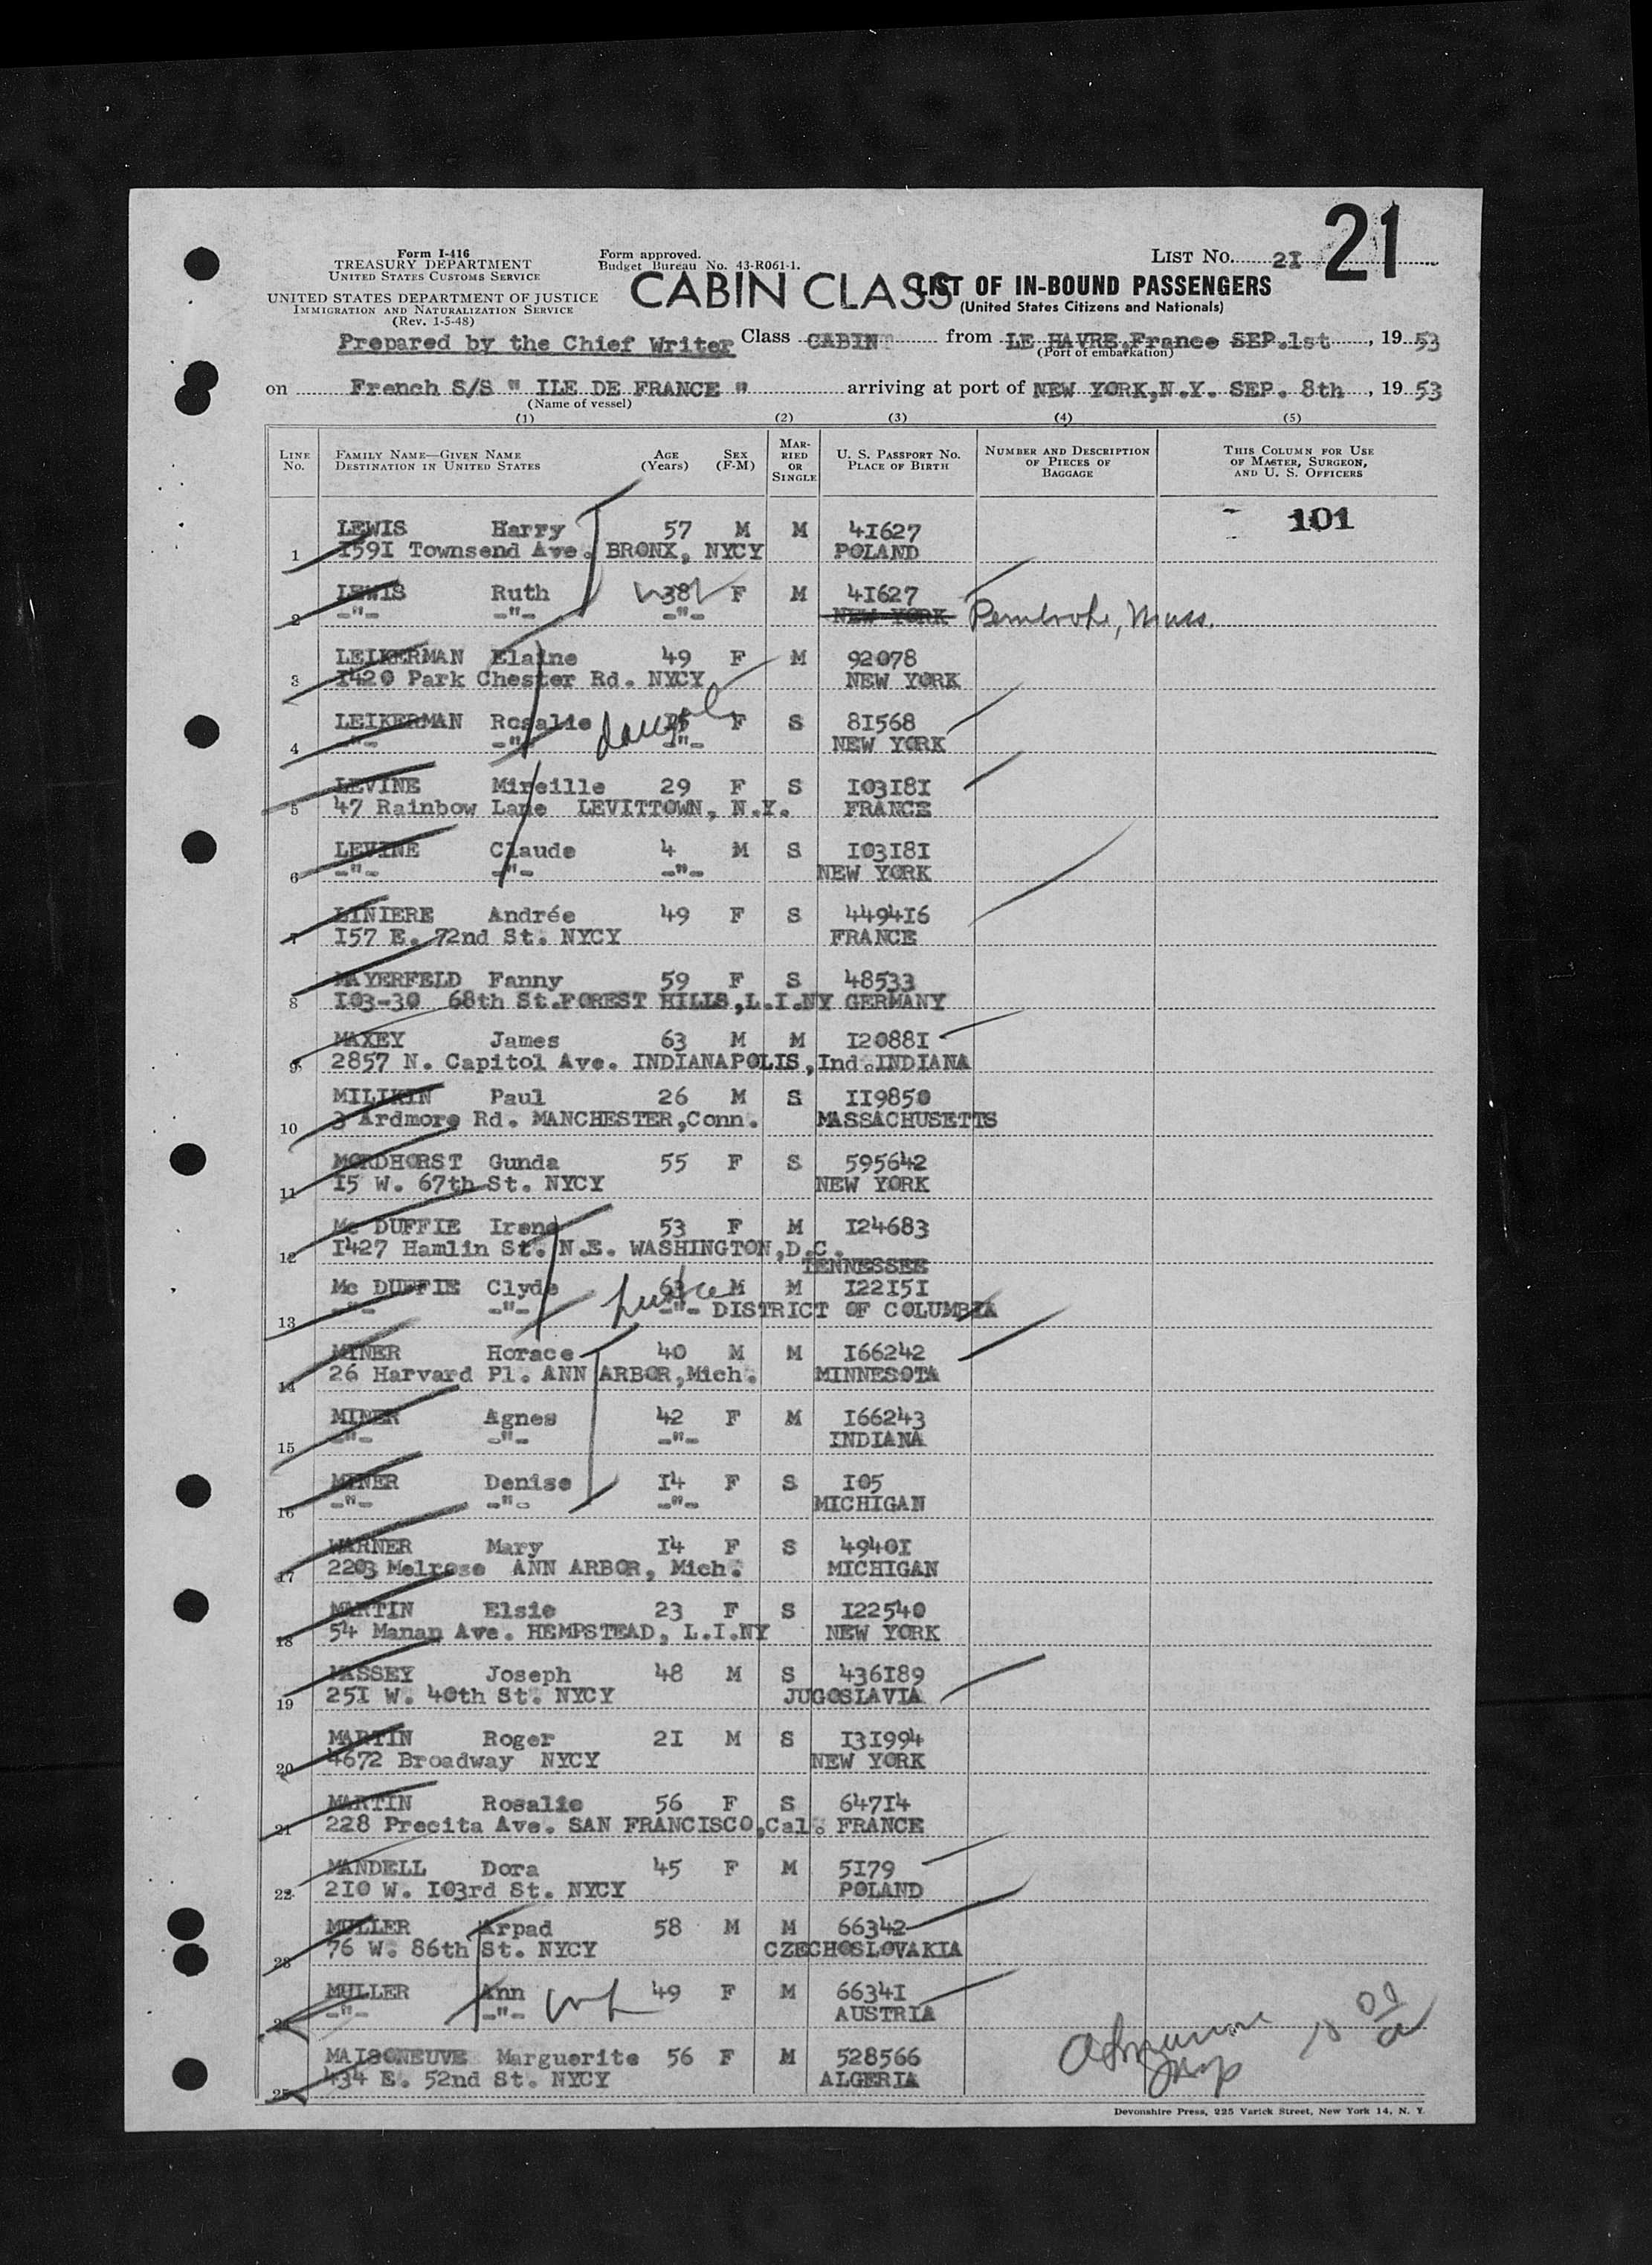 21
Form I-416
TREASURY DEPARTMENT
UNITED STATES CUSTOMS SERVICE
UNITED STATES DEPARTMENT OF JUSTICE
IMMIGRATION AND NATURALIZATION SERVICE
(Rev. 1-5-48)
Form approved.
Budget Bureau No. 43-R061-1.
LIST No. 2I
CABIN CLASS
LIST OF IN-BOUND PASSENGERS
(United States Citizens and Nationals)
Prepared by the Chief Writer Class CABIN from LE HAVRE.France SEP.1st, 1953
(Port of embarkation)
on French S/S " ILE DE FRANCE " arriving at port of NEW YORK,N.Y. SEP. 8th, 1953
(Name of vessel)
(1) (2) (3) (4) (5)
LINE No. FAMILY NAME—GIVEN NAME DESTINATION IN UNITED STATES AGE (Years) SEX (F-M) MARRIED OR SINGLE U. S. PASSPORT NO. PLACE OF BIRTH NUMBER AND DESCRIPTION OF PIECES OF BAGGAGE THIS COLUMN FOR USE OF MASTER, SURGEON, AND U. S. OFFICERS
101
LEWIS Harry 57 M M 4I627
1 I59I Townsend Ave. BRONX, NYCY POLAND
LEWIS Ruth 38 F M 4I627
2 -"- -"- -"- NEW YORK Pembroke, Mass.
LEIKERMAN Elaine 49 F M 92078
3 I420 Park Chester Rd. NYCY NEW YORK
LEIKERMAN Rosalie F S 8I568
4 -"- -"- -"- NEW YORK
LEVINE Mireille 29 F S I03I8I
5 47 Rainbow Lane LEVITTOWN, N.Y. FRANCE
LEVINE Claude 4 M S I03I8I
6 -"- -"- -"- NEW YORK
LINIERE Andrée 49 F S 4494I6
7 I57 E. 72nd St. NYCY FRANCE
MAYERFELD Fanny 59 F S 48533
8 I03-30 68th St.FOREST HILLS,L.I.NY GERMANY
MAXEY James 63 M M I2088I
9 2857 N. Capitol Ave. INDIANAPOLIS,Ind.INDIANA
MILIKIN Paul 26 M S II9850
10 3 Ardmore Rd. MANCHESTER,Conn. MASSACHUSETTS
MORDHORST Gunda 55 F S 595642
11 I5 W. 67th St. NYCY NEW YORK
Mc DUFFIE Irene 53 F M I24683
12 I427 Hamlin St. N.E. WASHINGTON,D.C.
TENNESSEE
Mc DUFFIE Clyde 63 M M I22I5I
13 -"- -"- -"- DISTRICT OF COLUMBIA
MINER Horace 40 M M I66242
14 26 Harvard Pl. ANN ARBOR,Mich. MINNESOTA
MINER Agnes 42 F M I66243
15 -"- -"- -"- INDIANA
MINER Denise I4 F S I05
16 -"- -"- -"- MICHIGAN
WARNER Mary I4 F S 4940I
17 2203 Melrose ANN ARBOR, Mich. MICHIGAN
MARTIN Elsie 23 F S I22540
18 54 Manan Ave. HEMPSTEAD, L.I.NY NEW YORK
MASSEY Joseph 48 M S 436I89
19 25I W. 40th St. NYCY JUGOSLAVIA
MARTIN Roger 2I M S I3I994
20 4672 Broadway NYCY NEW YORK
MARTIN Rosalie 56 F S 647I4
21 228 Precita Ave. SAN FRANCISCO,Cal. FRANCE
MANDELL Dora 45 F M 5I79
22 2I0 W. I03rd St. NYCY POLAND
MULLER Arpad 58 M M 66342
23 76 W. 86th St. NYCY CZECHOSLOVAKIA
MULLER Ann 49 F M 6634I
24 -"- -"- AUSTRIA
MAISONEUVE Marguerite 56 F M 528566
25 434 E. 52nd St. NYCY ALGERIA
Devonshire Press, 225 Varick Street, New York 14, N. Y.